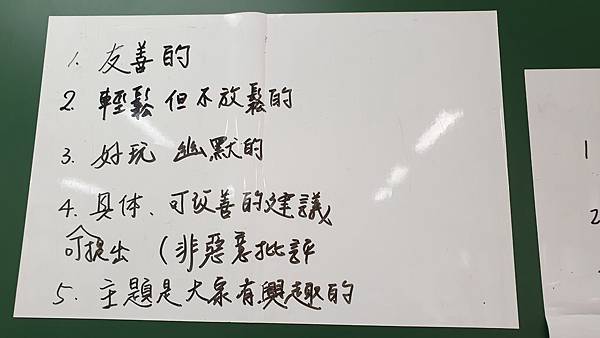 1. 友善的
2. 輕鬆但不放鬆的
3. 好玩 幽默的
4. 具体、可改善的建議
可提出 (非惡意批評
5. 主題是大家有興趣的
1
2